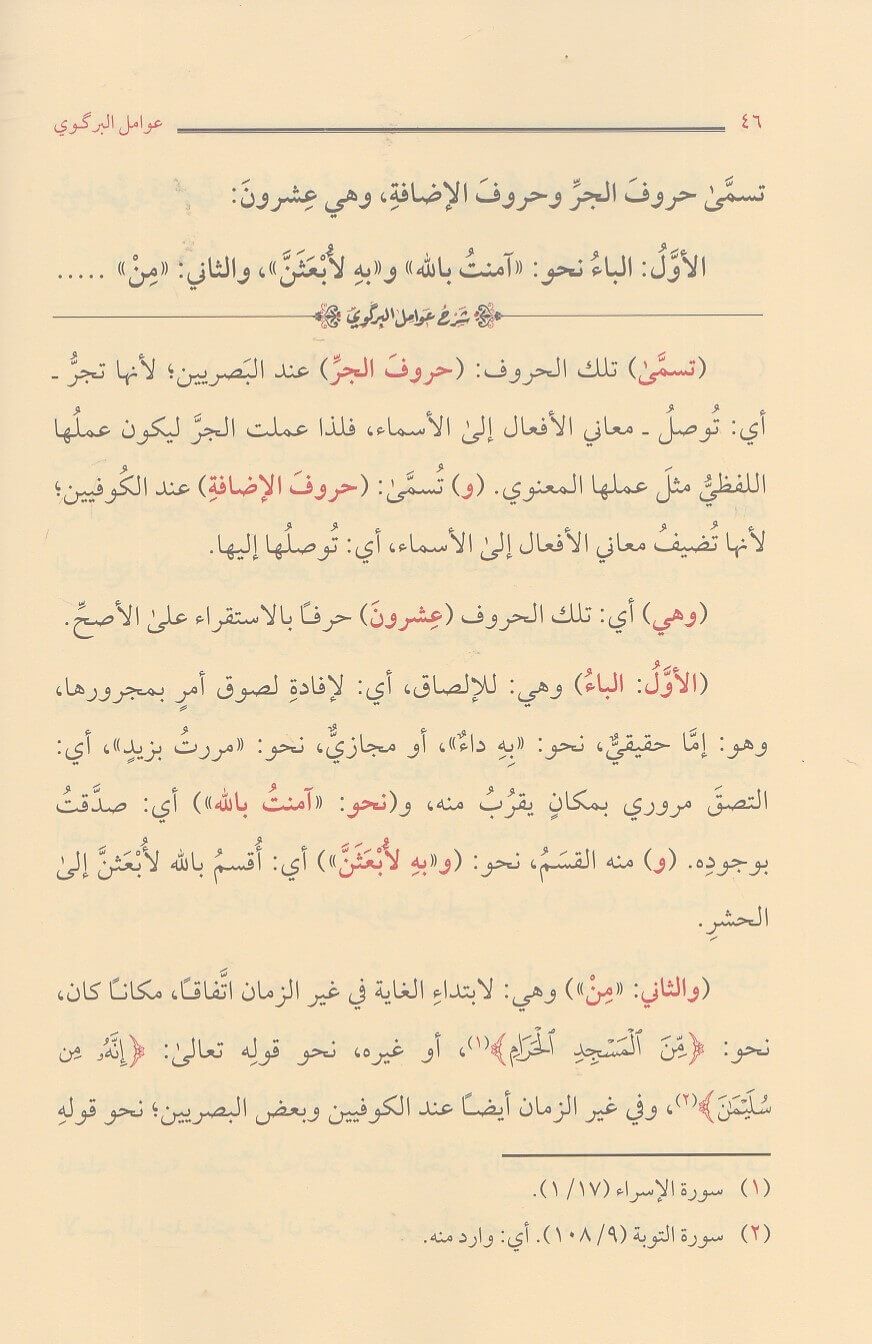 ٤٦ عوامل البرگوي
تسمَّىٰ حروفَ الجرِّ وحروفَ الإضافةِ، وهي عِشرونَ:
الأوَّلُ: الباءُ نحو: «آمنتُ بالله» و«بهِ لأُبْعَثَنَّ»، والثاني: «مِنْ» .....
شَرْحُ عَوَامِلِ البِرْكَوِيّ
(تسمَّىٰ) تلك الحروف: (حروفَ الجرِّ) عند البَصريين؛ لأنها تجرُّ ـ
أي: تُوصلُ ـ معاني الأفعال إلىٰ الأسماء، فلذا عملت الجرَّ ليكون عملُها
اللفظيُّ مثلَ عملها المعنوي. (و) تُسمَّىٰ: (حروفَ الإضافةِ) عند الكُوفيين؛
لأنها تُضيفُ معاني الأفعال إلىٰ الأسماء، أي: تُوصلُها إليها.
(وهي) أي: تلك الحروف (عِشرونَ) حرفًا بالاستقراء علىٰ الأصحِّ.
(الأوَّلُ: الباءُ) وهي: للإلصاق، أي: لإفادةِ لصوق أمرٍ بمجرورها،
وهو: إمَّا حقيقيٌّ، نحو: «بِهِ داءٌ»، أو مجازيٌّ، نحو: «مررتُ بزيدٍ»، أي:
التصقَ مروري بمكانٍ يقرُبُ منه، و(نحو: «آمنتُ بالله») أي: صدَّقتُ
بوجودِه. (و) منه القسَمُ، نحو: (و«بهِ لأُبْعَثَنَّ») أي: أُقسمُ بالله لأُبْعَثنَّ إلىٰ
الحشرِ.
(والثاني: «مِنْ») وهي: لابتداءِ الغاية في غير الزمان اتَّفاقًا، مكانًا كان،
نحو: ﴿مِّنَ ٱلْمَسْجِدِ ٱلْحَرَامِ﴾(١)، أو غيره، نحو قولِه تعالىٰ: ﴿إِنَّهُۥ مِن
سُلَيْمَٰنَ﴾(٢)، وفي غير الزمان أيضًا عند الكوفيين وبعض البصريين؛ نحو قولهِ
(١) سورة الإسراء (١/١٧).
(٢) سورة التوبة (١٠٨/٩). أي: وارد منه.